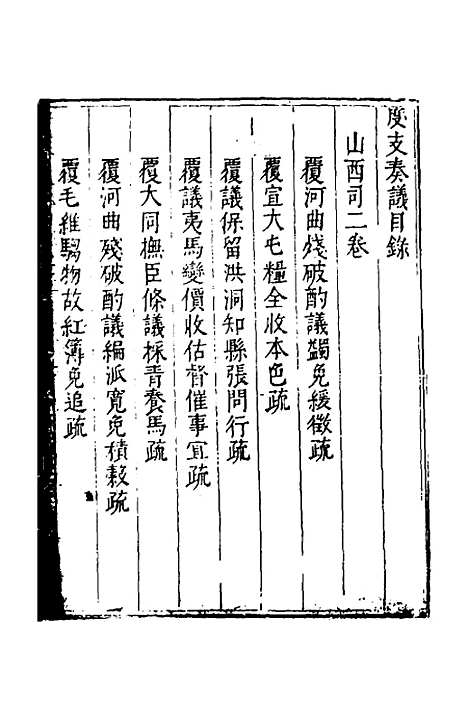 度支奏議目錄
山西司二卷
覆河曲殘破酌議蠲免緩徵疏
覆宣大屯糧全收本色疏
覆議保留洪洞知縣張問行疏
覆議夷馬變價收估督催事宜疏
覆大同撫臣條議採青賫馬疏
覆河曲殘破酌議編派寬免積穀疏
覆毛維騶物故紅簿免追疏